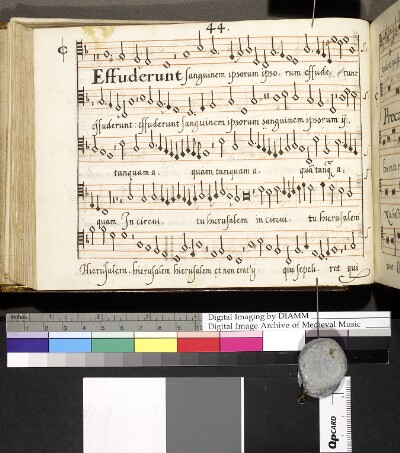 44.
Effuderunt sanguinem ipsorum ipso. rum effude. runt
effuderunt: effuderunt sanguinem ipsorum sanguinem ipsorum ij.
tanquam a. quam tanquam a. quā tanq̄ a.
quam, In circui. tu hierusalem in circui. tu hierusalem
Hierusalem. hierusalem hierusalem et non erat ij qui sepeli. ret qui
inches 1 2
Digital Imaging by DIAMM
Digital Image Archive of Medieval Music
OpCARD